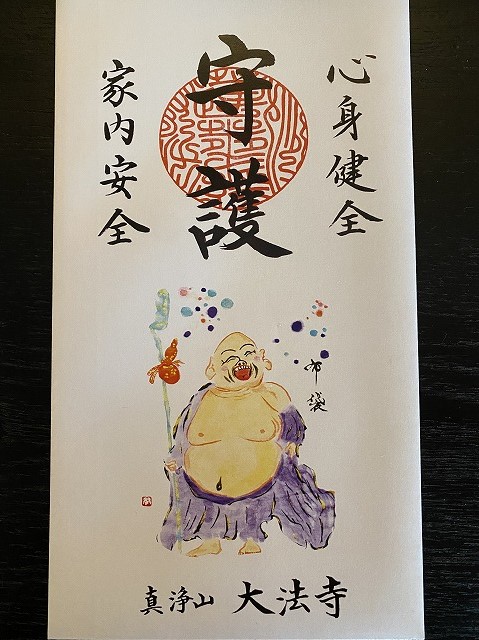 心身健全
守護
家内安全
布袋
真浄山 大法寺